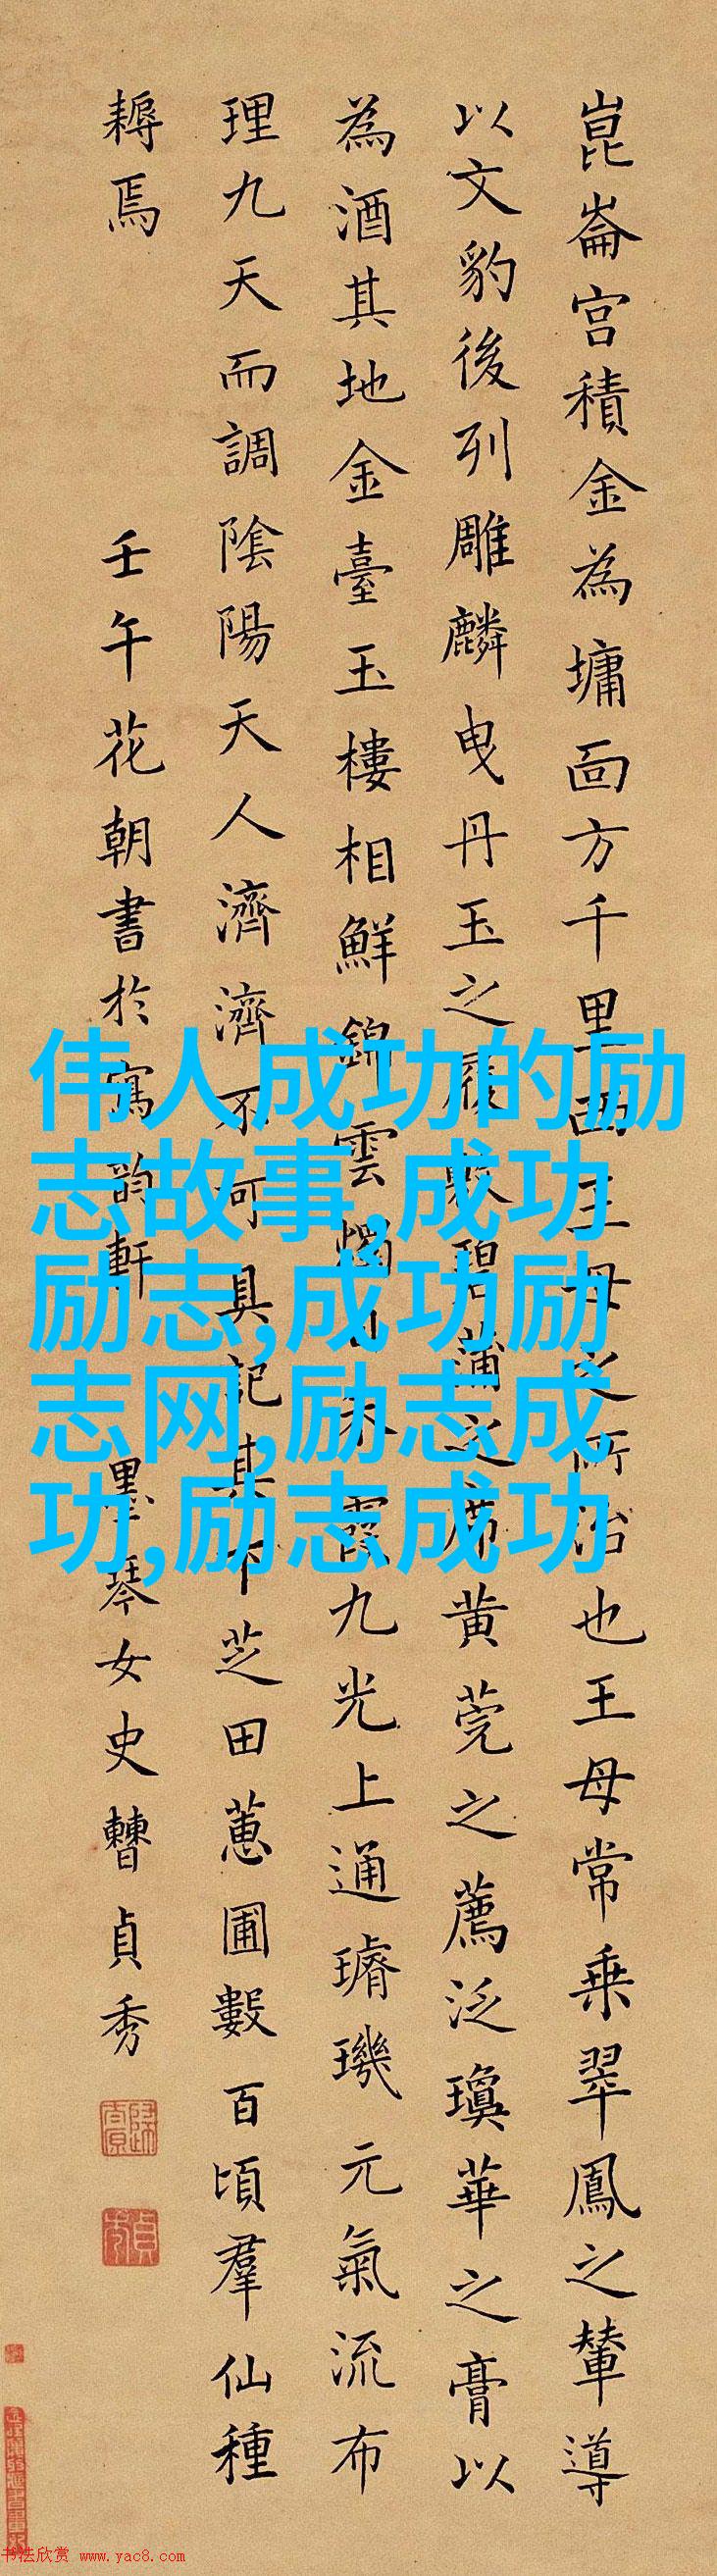 崑崙宮積金為墉面方千里西王母之所治也王母常乘翠鳳之輦導
以文豹後列雕麟曳丹玉之履敷碧蒲之席黄莞之薦泛瓊華之膏以
為酒其地金臺玉樓相鮮錦雲燭日朱霞九光上通璿璣元氣流布
理九天而調陰陽天人濟濟不可具記其下芝田蕙圃數百頃羣仙種
耨焉
壬午花朝書於寫韵軒
墨琴女史曹貞秀
伟人成功的励
志故事,成功
励志,成功励
志网,励志成
功,励志成功
书法欣赏 www.yac8.com